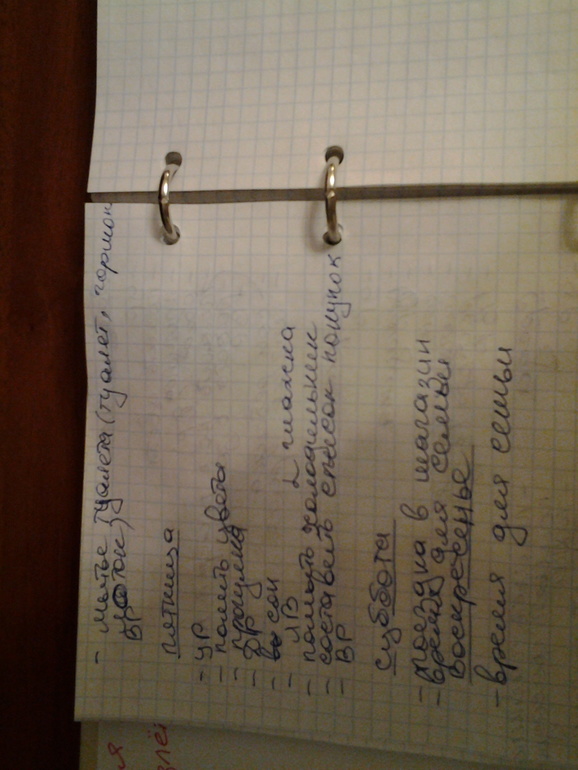 - Мытьё туалета (туалет, гормон
пол)
ВР
пятница
- УР
- полить цветы
- прогулка
- ДР
- сон
- 1В
2 глажка
- помыть холодильник
- составить список покупок
- ВР
суббота
- поездка в магазин
- время для семьи
воскресенье
- время для семьи